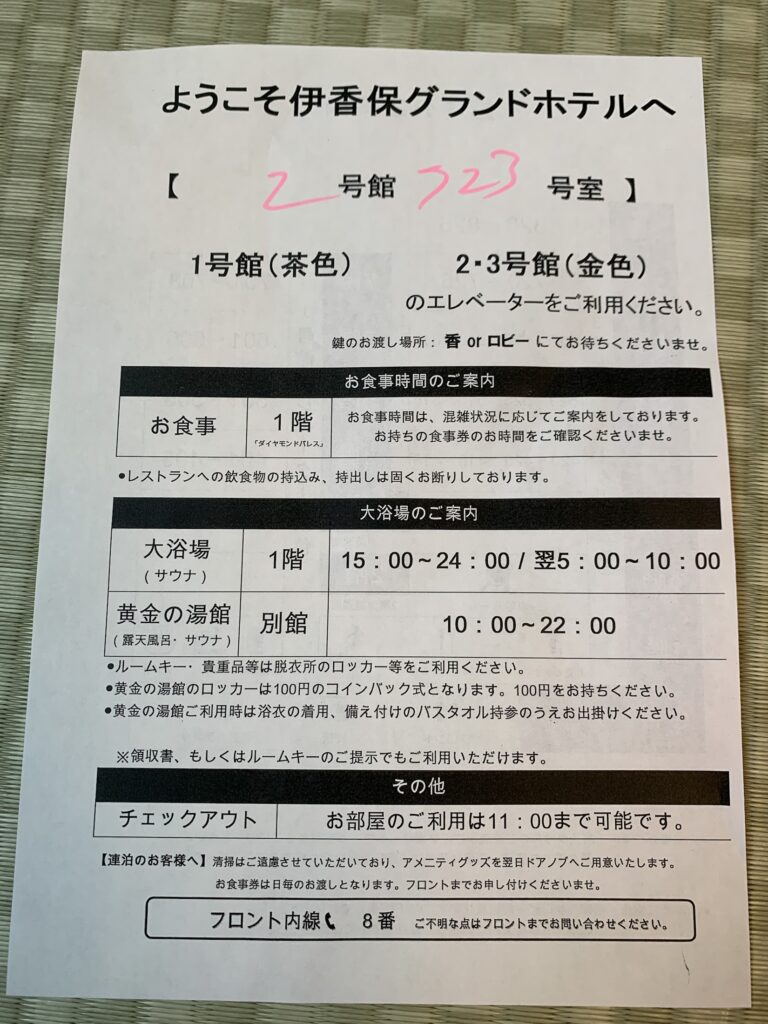 ようこそ伊香保グランドホテルへ
【 2 号館 723 号室 】
1号館（茶色） 2・3号館（金色）
のエレベーターをご利用ください。
鍵のお渡し場所： 香 or ロビー にてお待ちくださいませ。
お食事時間のご案内
お食事 1階 「ダイヤモンドパレス」 お食事時間は、混雑状況に応じてご案内をしております。
お持ちの食事券のお時間をご確認くださいませ。
●レストランへの飲食物の持込み、持出しは固くお断りしております。
大浴場のご案内
大浴場 （サウナ） 1階 15：00～24：00 / 翌5：00～10：00
黄金の湯館 （露天風呂・サウナ） 別館 10：00～22：00
●ルームキー・貴重品等は脱衣所のロッカー等をご利用ください。
●黄金の湯館のロッカーは100円のコインバック式となります。100円をお持ちください。
●黄金の湯館ご利用時は浴衣の着用、備え付けのバスタオル持参のうえお出掛けください。
※領収書、もしくはルームキーのご提示でもご利用いただけます。
その他
チェックアウト お部屋のご利用は11：00まで可能です。
【連泊のお客様へ】清掃はご遠慮させていただいており、アメニティグッズを翌日ドアノブへご用意いたします。
お食事券は日毎のお渡しとなります。フロントまでお申し付けくださいませ。
フロント内線 8番 ご不明な点はフロントまでお問い合わせください。